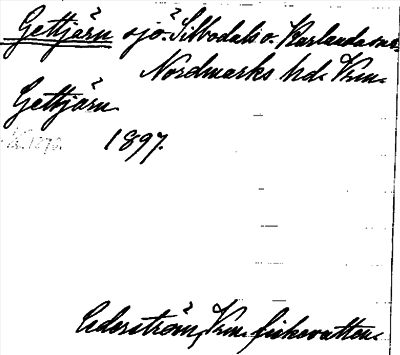 Gettjärn sjö. Silbodals o. Karlanda snr.
Nordmarks hd. Vrm.
Gettjärn
1897.
Cederström, Vrm. fiskevatten.